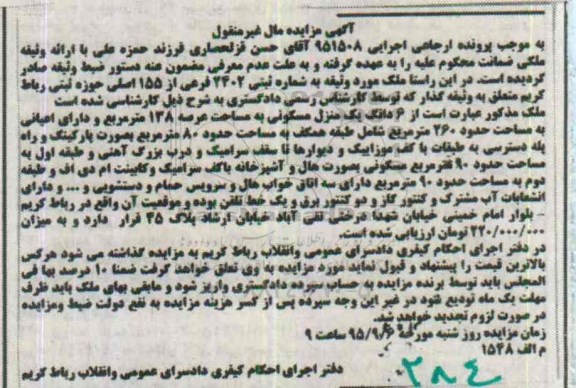 آگهی مزایده مال غیرمنقول
به موجب پرونده ارجاعی اجرایی ۹۵۱۵۰۸ آقای حسن قزلحصاری فرزند حمزه علی با ارائه وثیقه
ملکی ضمانت محکوم علیه را به عهده گرفته و به علت عدم معرفی مضمون عنه دستور ضبط وثیقه صادر
گردیده است. در این راستا ملک مورد وثیقه به شماره ثبتی ۲۴۰۲ فرعی از ۱۵۵ اصلی حوزه ثبتی رباط
کریم متعلق به وثیقه گذار که توسط کارشناس رسمی دادگستری به شرح ذیل کارشناسی شده است
ملک مذکور عبارت است از ۶ دانگ یک منزل مسکونی به مساحت عرصه ۱۳۸ مترمربع و دارای اعیانی
به مساحت حدود ۲۶۰ مترمربع شامل طبقه همکف به مساحت حدود ۸۰ مترمربع بصورت پارکینگ و راه
پله دسترسی به طبقات با کف موزاییک و دیوارها تا سقف سرامیک و درب بزرگ آهنی و طبقه اول به
مساحت حدود ۹۰ مترمربع مسکونی بصورت هال و آشپزخانه با کف سرامیک و کابینت ام دی اف و طبقه
دوم به مساحت حدود ۹۰ مترمربع دارای سه اتاق خواب هال و سرویس حمام و دستشویی و ... و دارای
انشعابات آب مشترک و کنتور گاز و دو کنتور برق و یک خط تلفن بوده و موقعیت آن واقع در رباط کریم
- بلوار امام خمینی خیابان شهداء درختی تقی آباد خیابان ارشاد پلاک ۴۵ قرار دارد و به میزان
۲۲۰/۰۰۰/۰۰۰ تومان ارزیابی شده است.
در دفتر اجرای احکام کیفری دادسرای عمومی وانقلاب رباط کریم به مزایده گذاشته می شود هرکس
بالاترین قیمت را پیشنهاد و قبول نماید مورد مزایده به وی تعلق خواهد گرفت ضمنا ۱۰ درصد بها فی
المجلس باید توسط برنده مزایده به حساب سپرده دادگستری واریز شود و مابقی بهای ملک باید ظرف
مهلت یک ماه تودیع شود در غیر این وجه سپرده پس از کسر هزینه مزایده به نفع دولت ضبط ومزایده
در صورت لزوم تجدید خواهد شد.
زمان مزایده روز شنبه مورخه ۹۵/۹/۶ ساعت ۹
م الف ۱۵۴۸
دفتر اجرای احکام کیفری دادسرای عمومی وانقلاب رباط کریم
۳۸۴